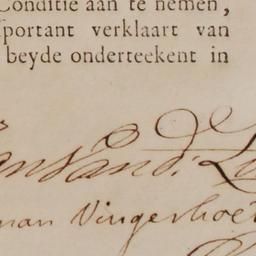 Conditie aan te nemen,
sportant verklaart van
beyde onderteekent in
man Vingerhoet